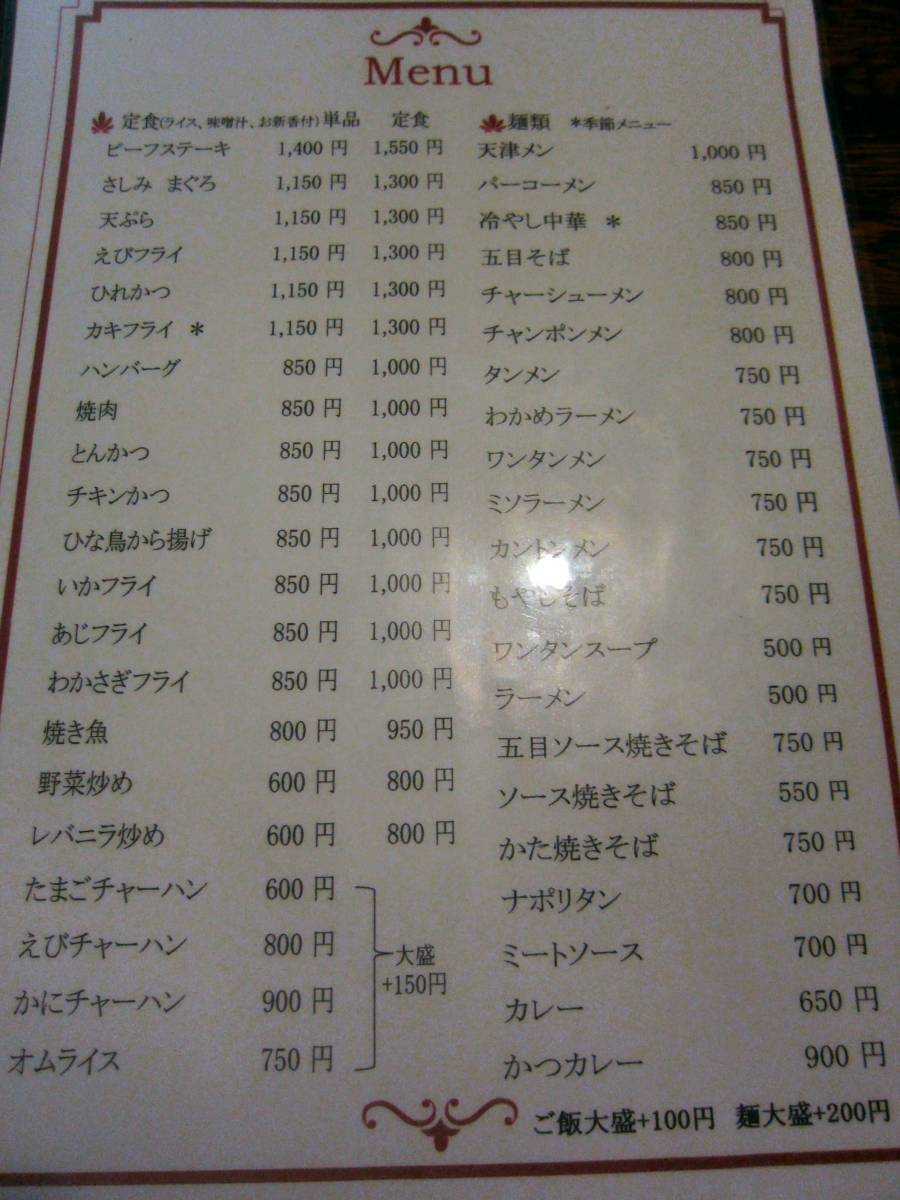 Menu
定食(ライス、味噌汁、お新香付) 単品 定食
ビーフステーキ 1,400 円 1,550 円
さしみ まぐろ 1,150 円 1,300 円
天ぷら 1,150 円 1,300 円
えびフライ 1,150 円 1,300 円
ひれかつ 1,150 円 1,300 円
カキフライ * 1,150 円 1,300 円
ハンバーグ 850 円 1,000 円
焼肉 850 円 1,000 円
とんかつ 850 円 1,000 円
チキンかつ 850 円 1,000 円
ひな鳥から揚げ 850 円 1,000 円
いかフライ 850 円 1,000 円
あじフライ 850 円 1,000 円
わかさぎフライ 850 円 1,000 円
焼き魚 800 円 950 円
野菜炒め 600 円 800 円
レバニラ炒め 600 円 800 円
たまごチャーハン 600 円
えびチャーハン 800 円
かにチャーハン 900 円
オムライス 750 円
大盛
+150円
麺類 *季節メニュー
天津メン 1,000 円
パーコーメン 850 円
冷やし中華 * 850 円
五目そば 800 円
チャーシューメン 800 円
チャンポンメン 800 円
タンメン 750 円
わかめラーメン 750 円
ワンタンメン 750 円
ミソラーメン 750 円
カントンメン 750 円
もやしそば 750 円
ワンタンスープ 500 円
ラーメン 500 円
五目ソース焼きそば 750 円
ソース焼きそば 550 円
かた焼きそば 750 円
ナポリタン 700 円
ミートソース 700 円
カレー 650 円
かつカレー 900 円
ご飯大盛+100円 麺大盛+200円